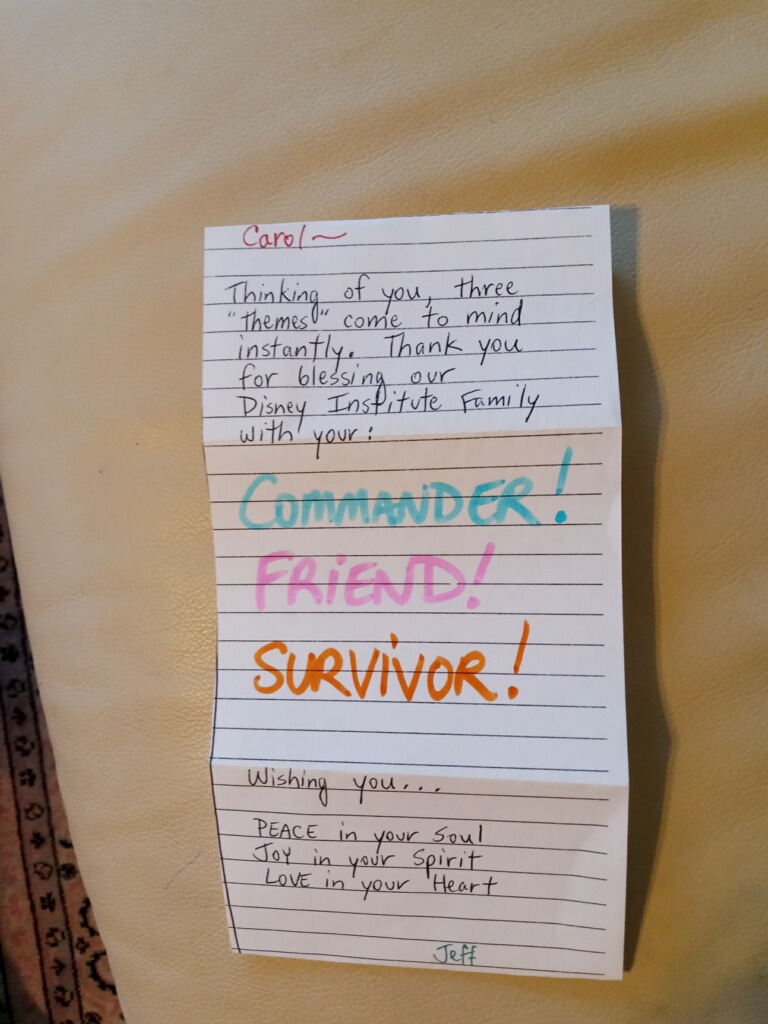 Carol~
Thinking of you, three
"themes" come to mind
instantly. Thank you
for blessing our
Disney Institute Family
with your:
COMMANDER!
FRiEND!
SURViVOR!
Wishing you...
PEACE in your Soul
JOY in your Spirit
LOVE in your Heart
Jeff